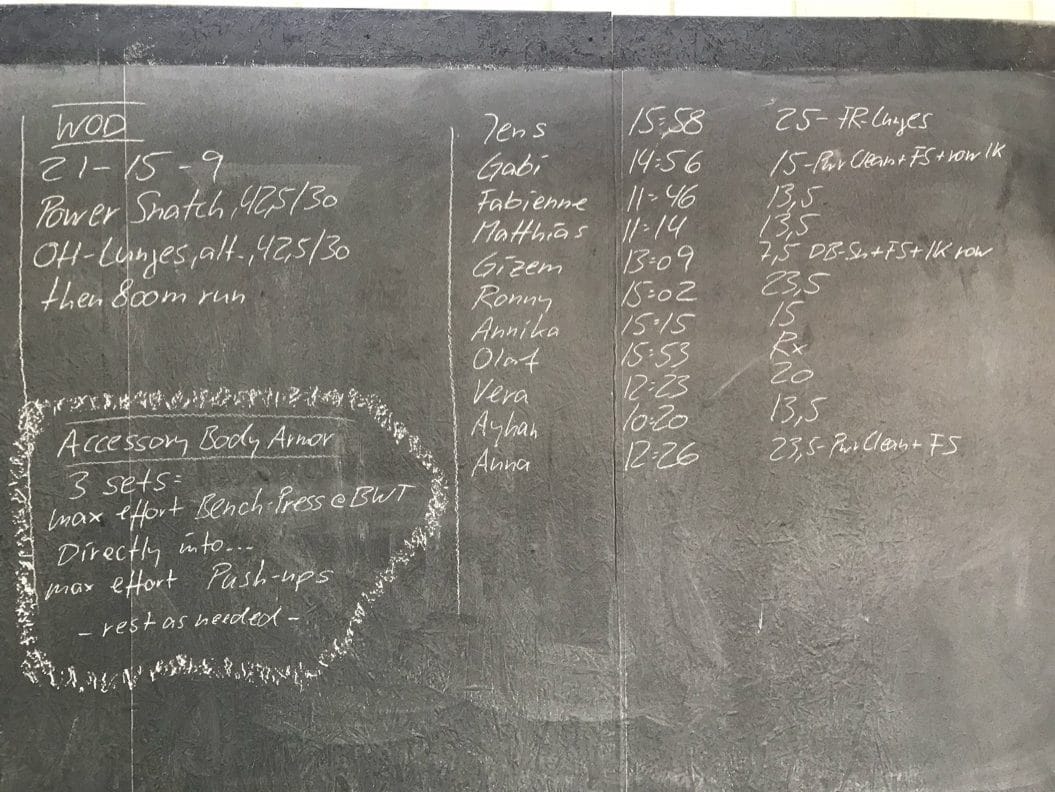 WOD
21-15-9
Power Snatch, 42,5/30
OH-Lunges, alt., 42,5/30
then 800m run
Accessory Body Armor
3 sets:
max effort Bench-Press @ BWT
Directly into...
max effort Push-ups
- rest as needed -
Jens 15:58 25- FR-Lunges
Gabi 14:56 15-Pwr Clean + FS + row 1K
Fabienne 11:46 13,5
Matthias 11:14 13,5
Gizem 13:09 7,5 DB-Sn + FS + 1K row
Ronny 15:02 23,5
Annika 15:15 15
Olaf 15:53 Rx
Vera 12:23 20
Ayhan 10:20 13,5
Anna 12:26 23,5-Pwr Clean + FS